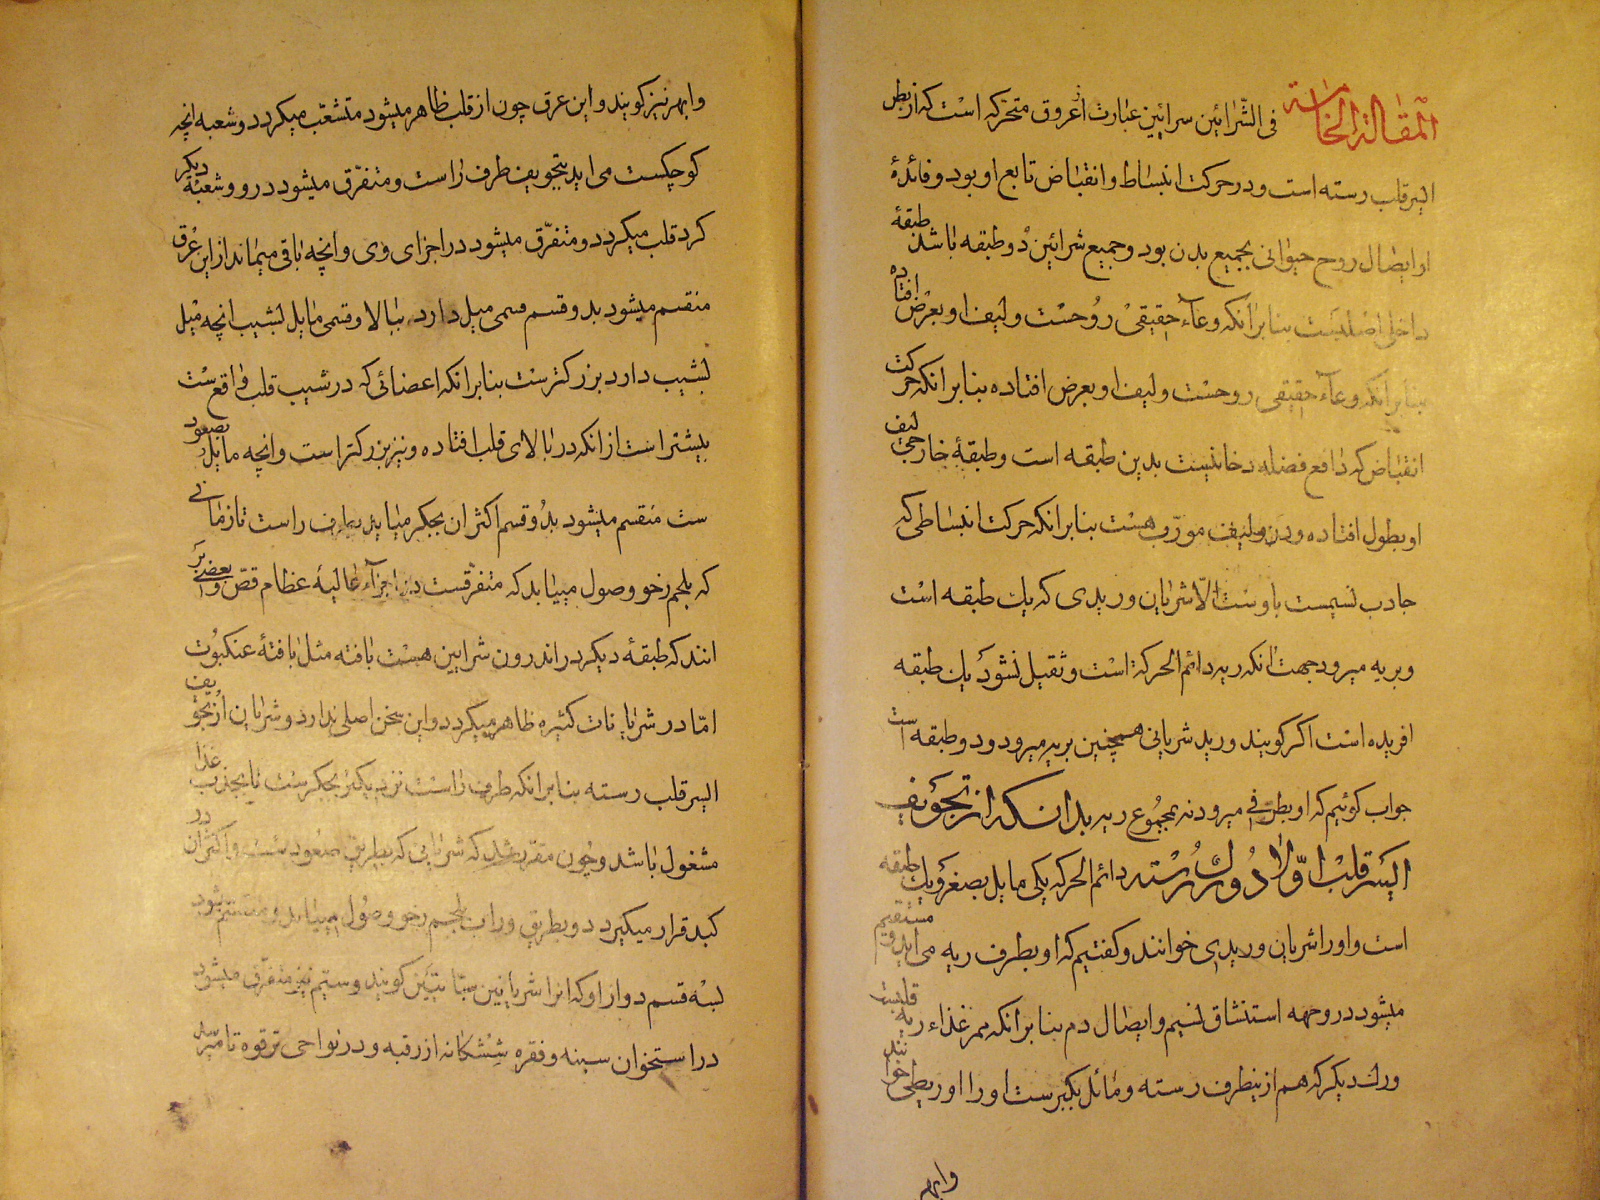 المقالة الخامسة فی الشرائین سرایین عبارت از عروق متحرکه است که از بطن
ایسر قلب رسته است و در حرکت انبساط و انقباض تابع او بود و فائدهٔ
او ایصال روح حیوانی بجمیع بدن بود و جمیع شرائین دو طبقه باشد طبقهٔ
داخلی اصلبست بنابرانکه وعاء حقیقی روحست ولیف او بعرض افتاده
بنابرانکه وعاء حقیقی روحست ولیف او بعرض افتاده بنابرانکه حرکت
انقباض که دافع فضله دخانیست بدین طبقه است و طبقهٔ خارجی لیف
او بطول افتاده و درو لیف مورّب هست بنابرانکه حرکت انبساطی که
جاذب نسیمست باوست الّا شریان وریدی که یک طبقه است
و بریه میرود جهت انکه ریه دائم الحرکة است و ثقیل نشود یک طبقه
افریده است اکر کویند ورید شریانی همچنین بریه میرود و دو طبقه است
جواب کوئیم که او بطرفی میرود نه بمجموع ریه بدانکه از تجویف
ایسر قلب اوّلا دو رک رسته دائم الحرکه یکی مایل بصغر و یک طبقه
است و او را شریان وریدی خوانند و کفتیم که او بطرف ریه می اید و منقسم
میشود در وجهه استنشاق نسیم و ایصال دم بنابرانکه ممر غذاء ریه قلبست
و رک دیکر که هم ازینطرف رسته و مائل بکبرست او را اورطی خوانند
وابهر
وابهر نیز کویند و این عرق چون از قلب ظاهر میشود متشعّب میکردد دو شعبه انچه
کوچکست می اید بتجویف طرف راست و متفرّق میشود درو و شعبهٔ دیکر
کرد قلب میکردد و متفرّق میشود در اجزای وی و انچه باقی میماند از این عرق
منقسم میشود بدو قسم قسمی میل دارد ببالا و قسمی مایل بشیب انچه میل
بشیب دارد بزرکترست بنابرانکه اعضائی که در شیب قلب واقعست
بیشتر است از انکه در بالای قلب افتاده و نیز بزرکتر است و انچه مایل بصعود
ست منقسم میشود بدو قسم اکثر ان بجکر میاید بطرف راست تا زمانی
که بلجم رخو وصول مییابد که متفرقست در اجزاء عالیهٔ عظام قص و بعضی بر
انند که طبقهٔ دیکر در اندرون شرایین هست بافته مثل بافتهٔ عنکبوت
امّا در شریانات کثیره ظاهر میکردد و این سخن اصلی ندارد و شریان از تجویف
ایسر قلب رسته بنابرانکه طرف راست نزدیکتر بجکرست تا بجذب غذا
مشغول باشد و چون مقرر شد که شریانی که بطریق صعود ست و اکثر ان در
کبد قرار میکیرد و بطریق وراب بلجم رخو وصول مییابد و منقسم میشود
بسه قسم دو از او که انرا شریانین سباتیین کویند و سیم نیز متفرّق میشود
در استخوان سینه و فقره ششکانه از رقبه و در نواحی ترقوه تا میرسد